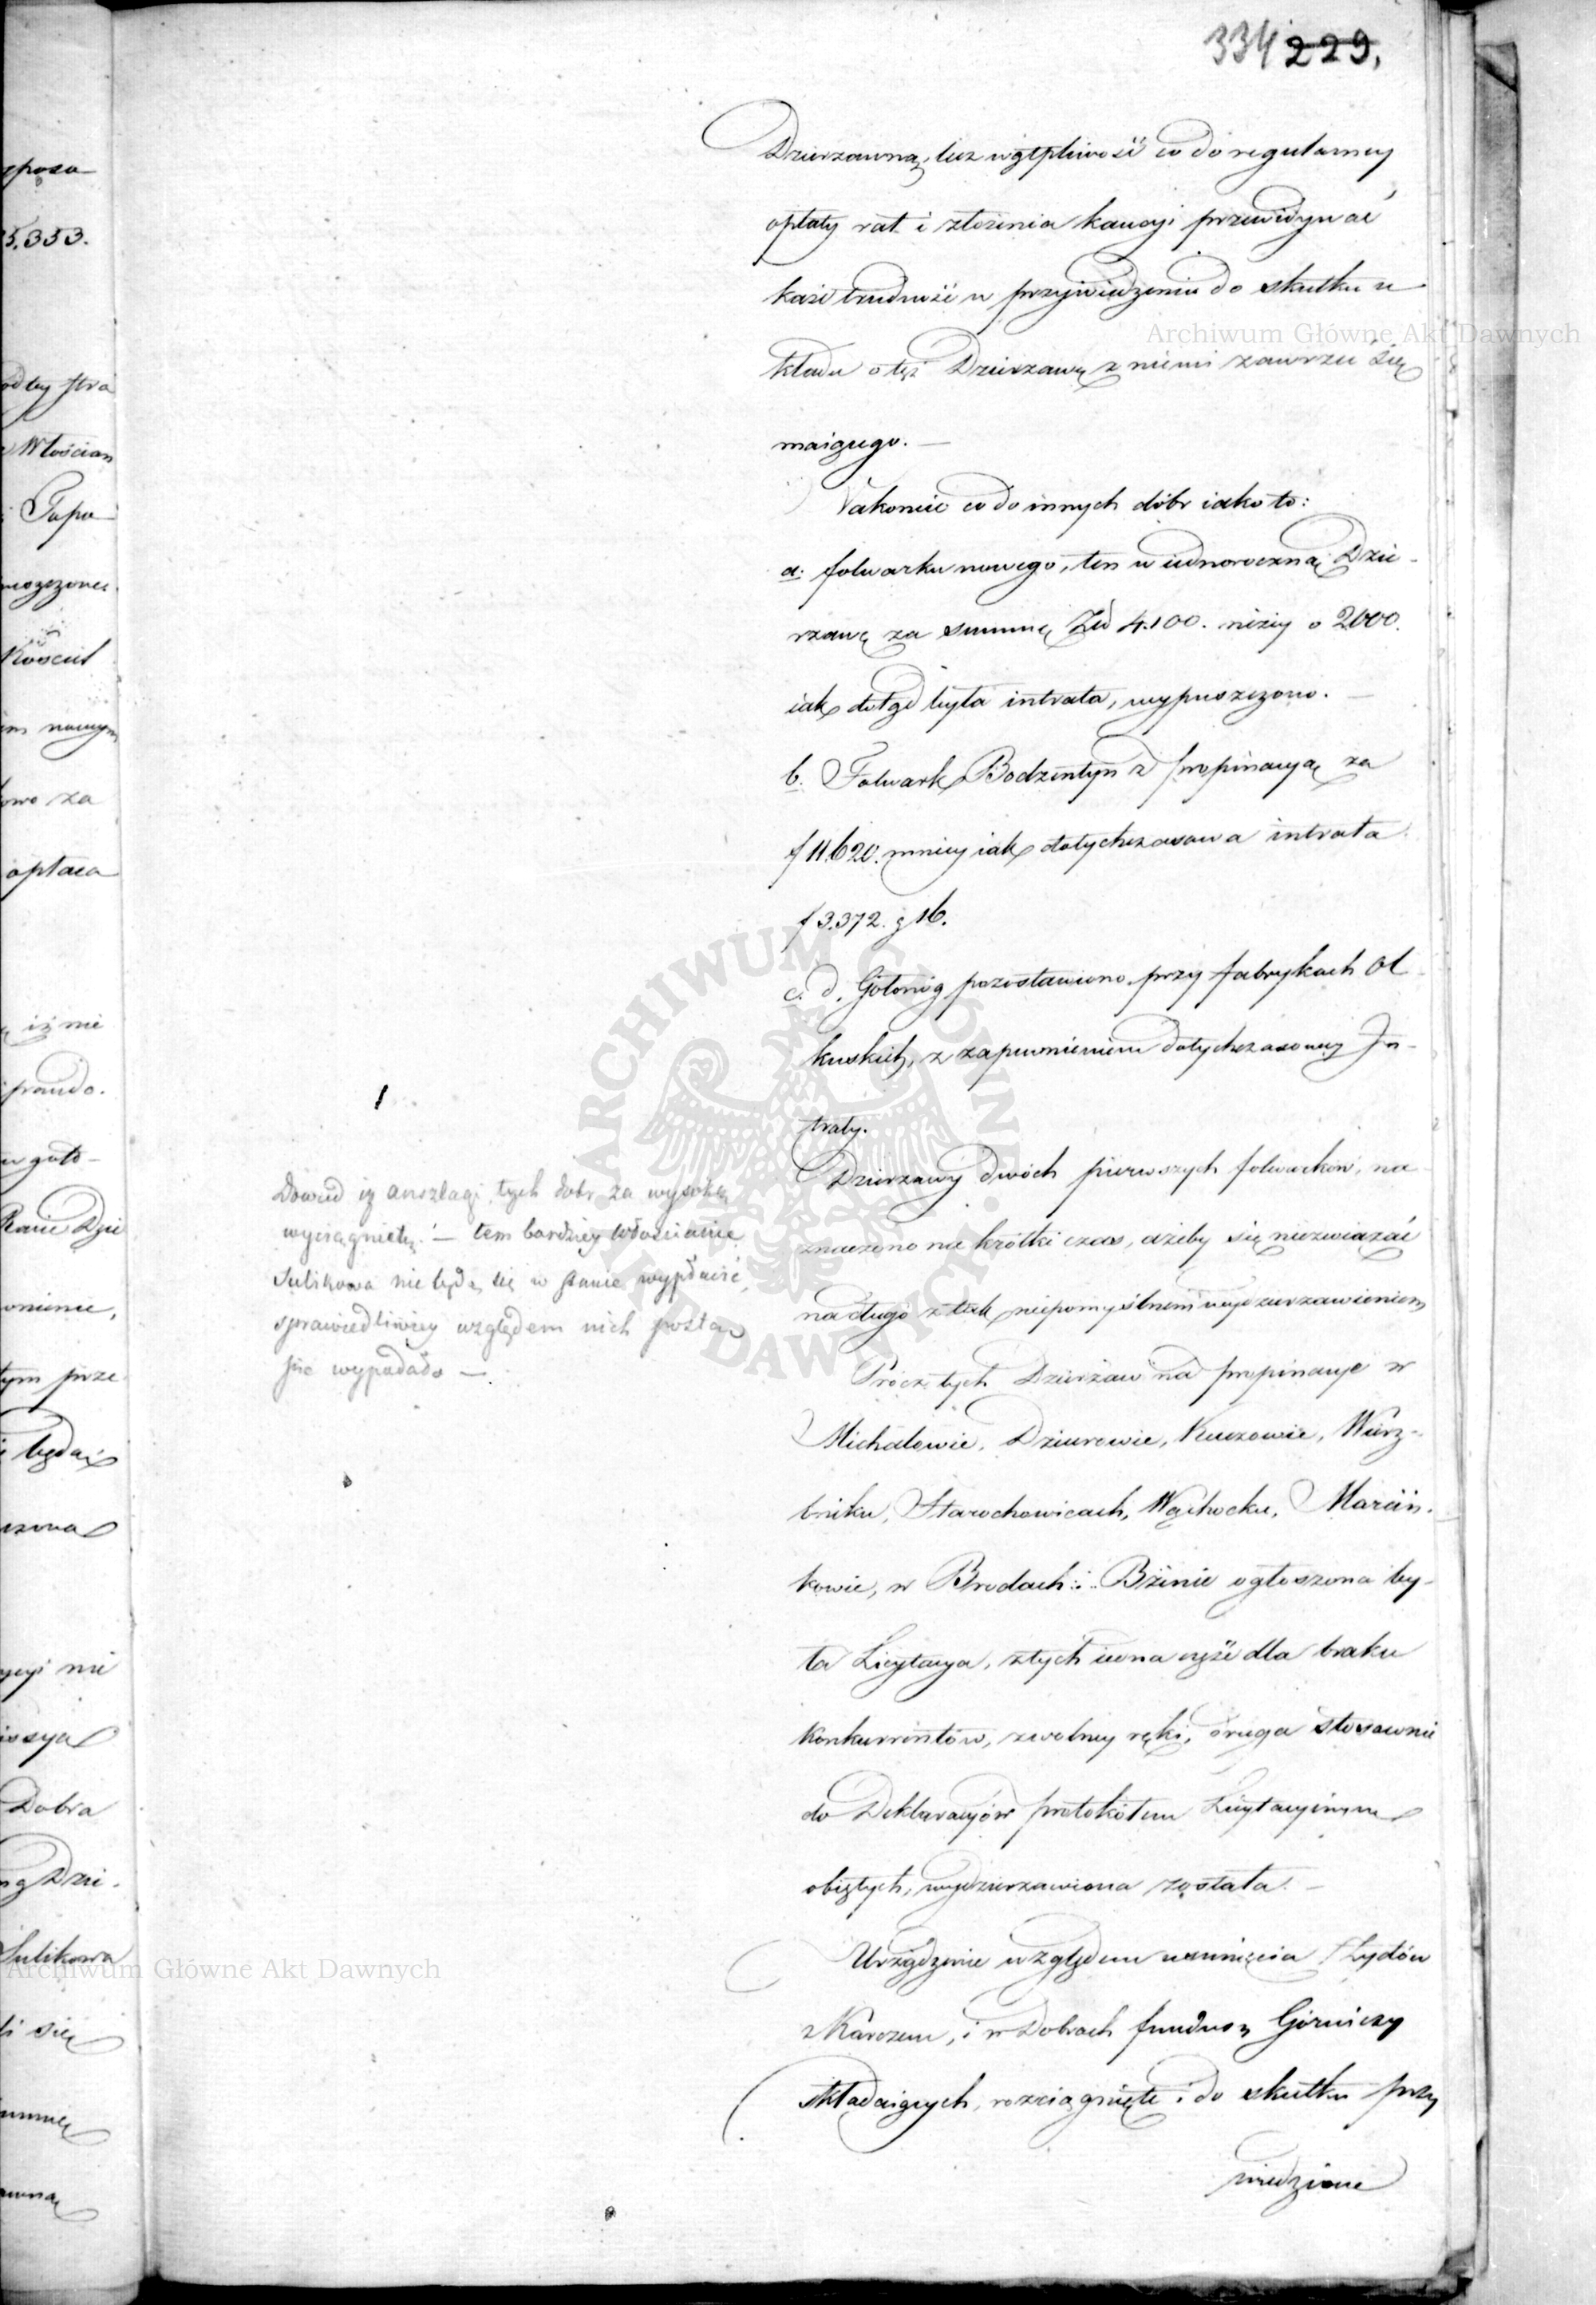 334 229.
Dzierzawną, lecz wątpliwość co do regularney
opłaty rat i złożenia kaucyi przewidywać
każe trudność w przywiedzeniu do skutku u
kładu o tęż Dzierzawę z niemi zawrzeć się
maiącego. —
Nakoniec co do innych dóbr iako to:
a. folwarku nowego, ten w iednoroczną Dzie-
rzawę za summę Złp 4.100. niżey o 2000.
iak dotąd była intrata, wypuszczono. —
b. Folwark Bodzentyn z propinacyą za
f 11.620. mniey iak dotychczasowa intrata
f 3.372. g 16.
c. d. Gołonóg pozostawiono przy fabrykach Ol
kuskich, z zapewnieniem dotychczasowey In-
traty.
Dzierzawy dwóch pierwszych folwarków, na
znaczono na krótki czas, ażeby się niezwiązać
na długo z tak niepomyślnem wydzierzawieniem
Prócz tych Dzierżaw na propinacye w
Michałowie, Dziurowie, Kuczowie, Wierz-
bniku, Starochowicach, Wąchocku, Marcin-
kowie, w Brodach i Bzinie ogłoszona by-
ła Licytacya, z tych iedna część dla braku
Konkurrentów, z wolney ręki, druga stosownie
do Deklaracyów protokółem Licytacyinym
obiętych, wydzierzawiona została. —
Urządzenie względem usunięcia Żydów
z Karczem, i w Dobrach fundusz Górniczy
składaiących, rozciągnięte i do skutku przy
wiedzione
Dowód iż anszlagi tych dobr za wysoko
wyciągnięte! — tem bardziey Włościanie
Sulikowa nie będą się w stanie wypłacić,
sprawiedliwiey względem nich postą
pić wypadało —
sposa
5,353.
Włościan
nowym
owo za
opłaca
iż nie
prawdo.
w goto-
Ranie Dzie
tym prze
będąc
Dobra
Dzie.
Sulikowa
się
Archiwum Główne Akt Dawnych
Archiwum Główne Akt Dawnych
ARCHIWUM GŁÓWNE AKT DAWNYCH